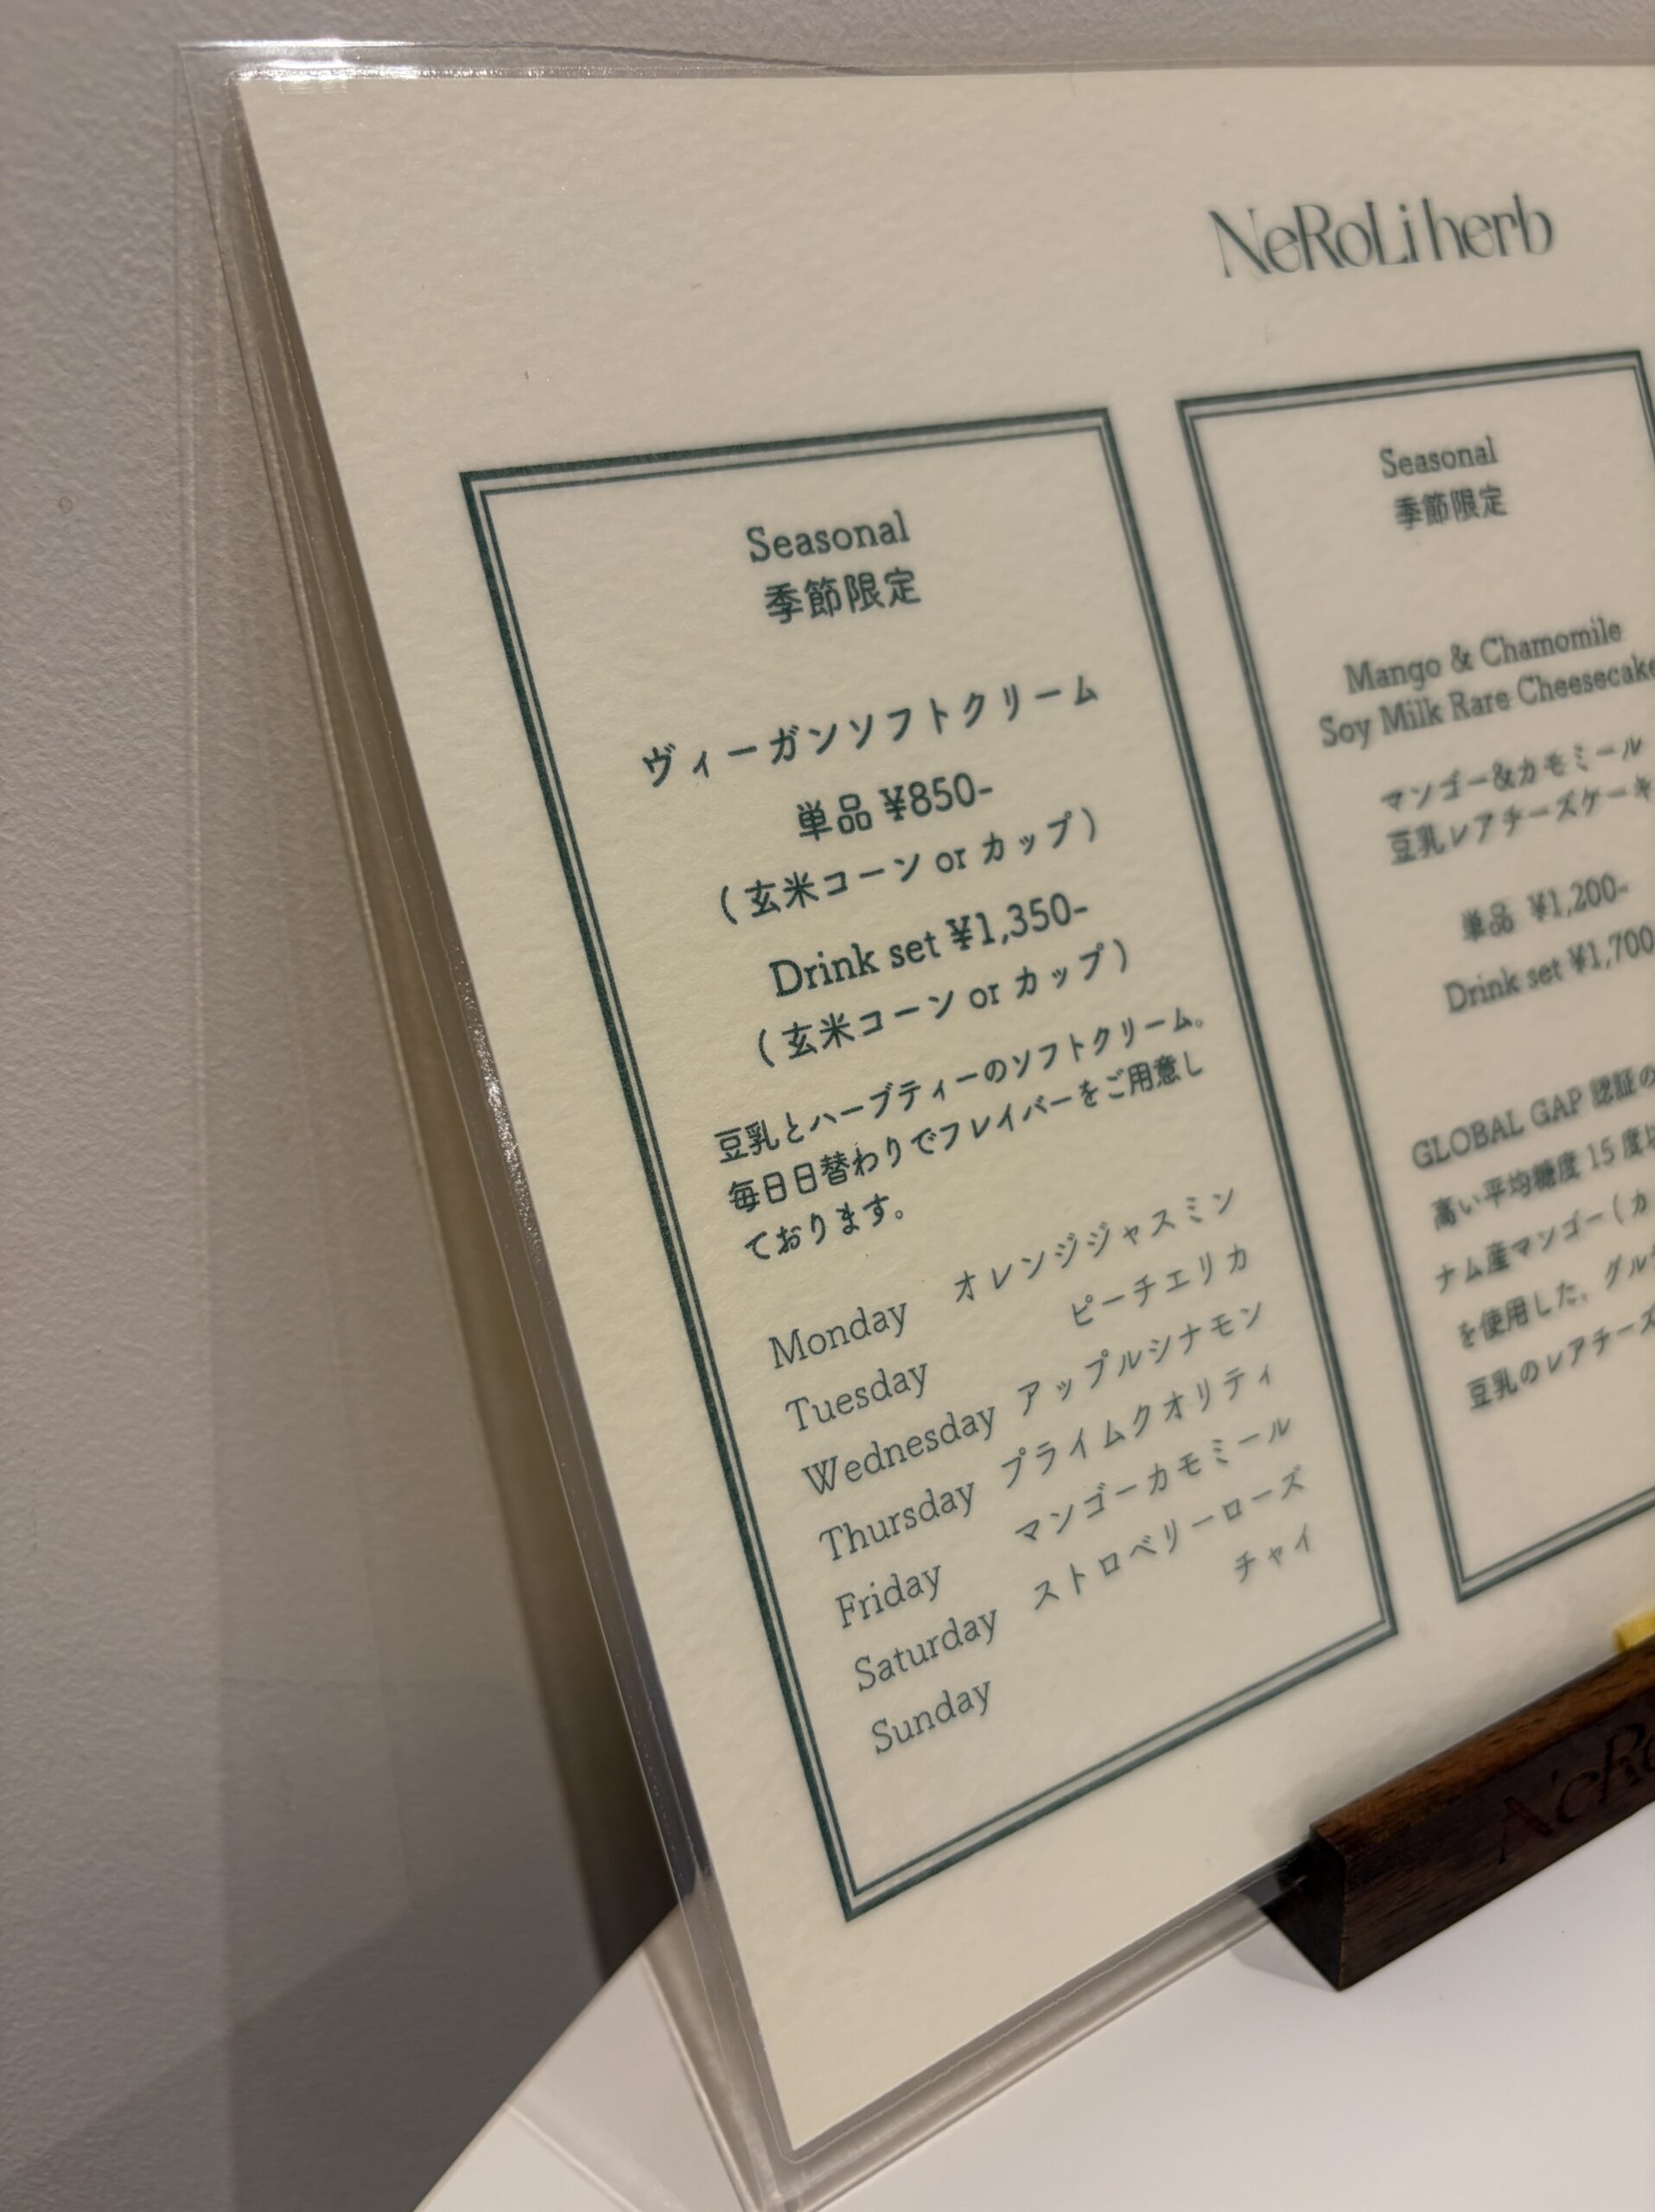 NeRoLi herb
Seasonal
季節限定
ヴィーガンソフトクリーム
単品 ¥850-
(玄米コーン or カップ)
Drink set ¥1,350-
(玄米コーン or カップ)
豆乳とハーブティーのソフトクリーム。
毎日日替わりでフレイバーをご用意し
ております。
Monday オレンジジャスミン
Tuesday ピーチエリカ
Wednesday アップルシナモン
Thursday プライムクオリティ
Friday マンゴーカモミール
Saturday ストロベリーローズ
Sunday チャイ
Seasonal
季節限定
Mango & Chamomile
Soy Milk Rare Cheesecake
マンゴー&カモミール
豆乳レアチーズケーキ
単品 ¥1,200-
Drink set ¥1,700
GLOBAL GAP 認証の
高い平均糖度 15 度
ナム産マンゴー(カ
を使用した、グル
豆乳のレアチーズ